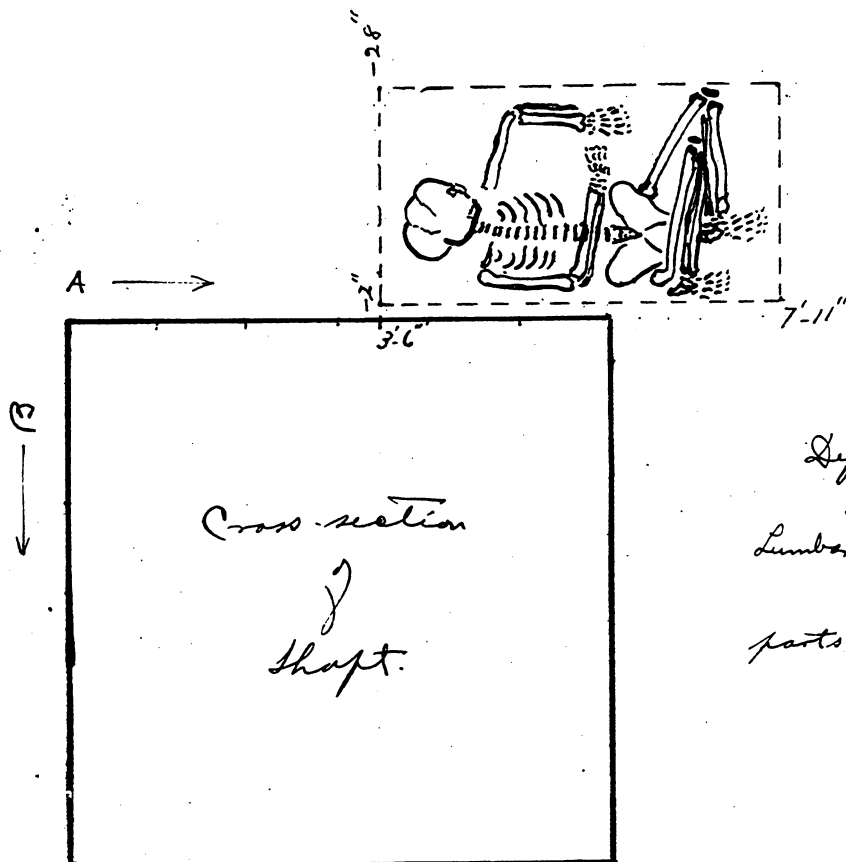 -28"
A
-2"
3'-6"
7'-11"
B
Cross-section
of
Shaft.
Lumbar
parts